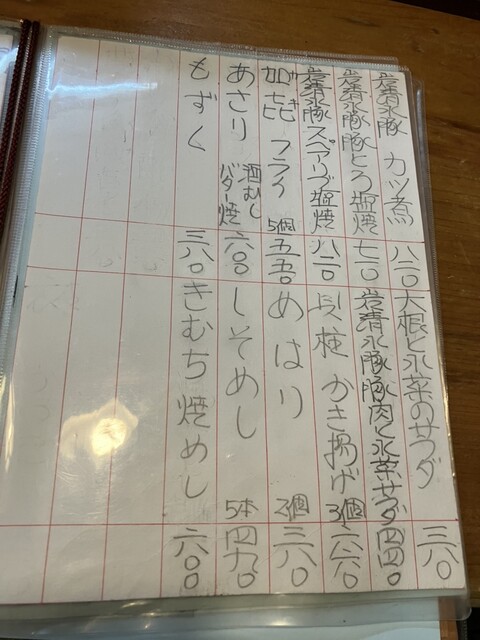 岩清水豚 カツ煮 八二〇
岩清水豚豚とろ塩焼
岩清水豚スペアリブ塩焼 八二〇
フライ 5個 五五〇
あさり 酒むし バター焼 六〇〇
もずく 三八〇
大根と水菜のサラダ 三八〇
岩清水豚豚肉と水菜サラダ 四四〇
貝柱かき揚げ 3個
めはり 2個 三八〇
しそめし 5本 四九〇
きむち焼めし 六〇〇